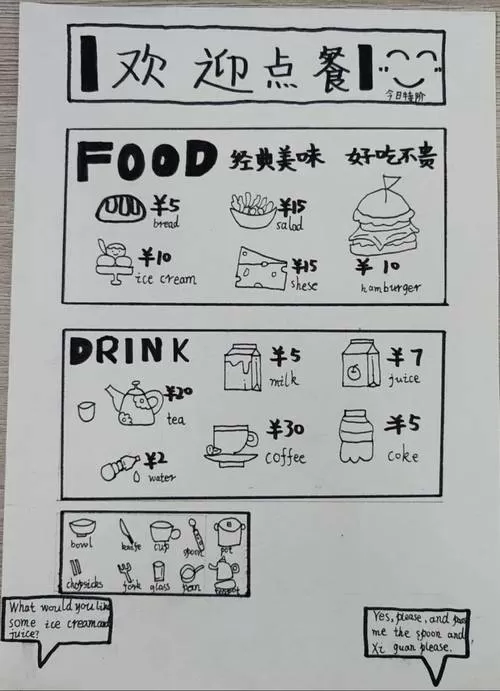 欢迎点餐
今日特价
FOOD 经典美味 好吃不贵
¥5
bread
¥15
salad
¥10
ice cream
¥15
shese
¥ 10
hamburger
DRINK
¥20
tea
¥5
milk
¥7
juice
¥2
water
¥30
coffee
¥5
coke
bowl
knife
cup
spoon
pot
chopsicks
fork
glass
pan
What would you like
some ice cream and
juice?
Yes, please, and pass
me the spoon and
Xi guan please.